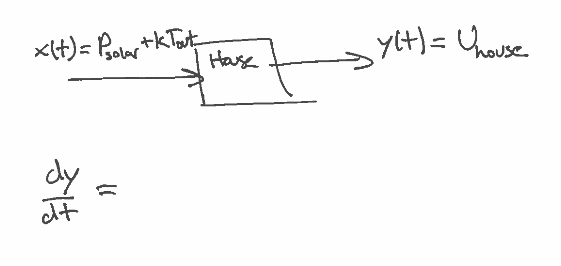 x(t) = P_solar + kT_out
House
y(t) = U_house
dy/dt =